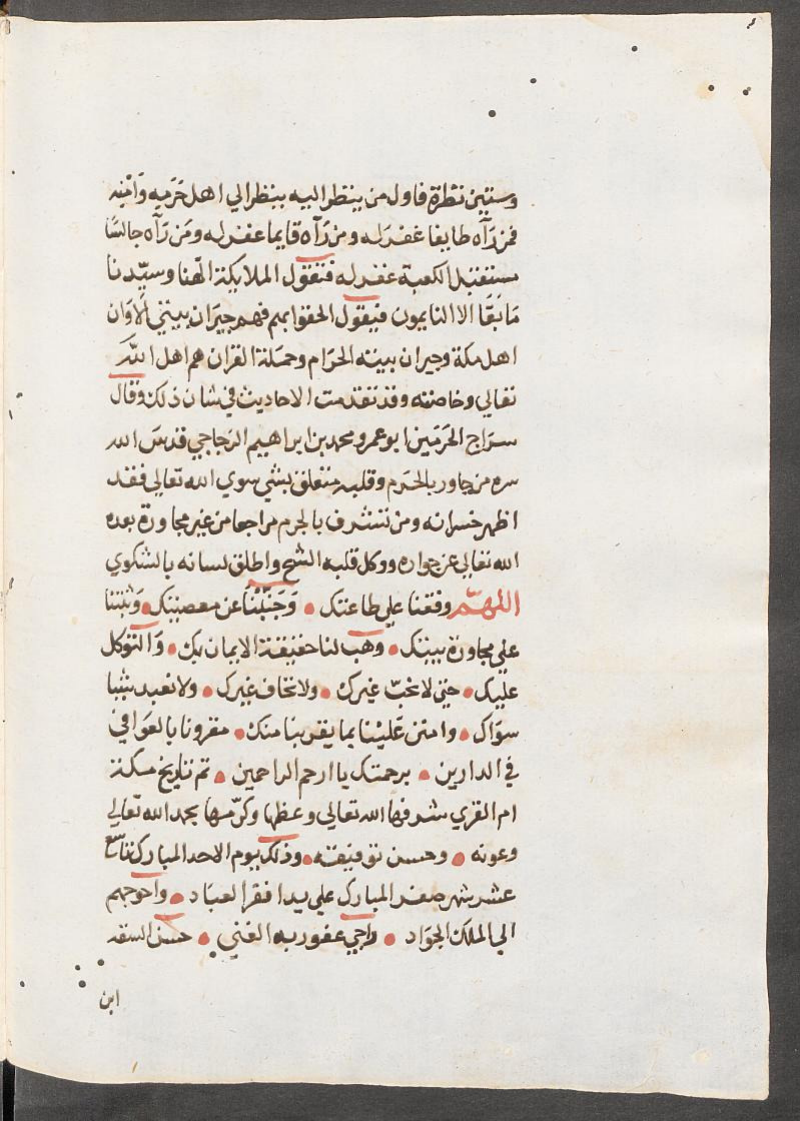 وستين نظرة فاول من ينظر اليه ينظر الي اهل حَرَمِه وَامْنه
فمن رَآه طايفا غفر لَه ومن رَآه قايما غفر له ومَن رَآه جالسًا
مستقبل الكعبة غفر له فتقول الملايكة الٰهنا وسيّدنا
مَا بَقَا الا النايمون فيقول الحقوا بهم فهم جيرَان بيتي اَلا وَان
اهل مكة وجيران بيته الحرَام وحملة القران هم اهل اللّٰه
تعالي وخاصته وقد تقدمت الاحاديث في شان ذلك وقال
سرَاج الحَرمَين ابو عمرو محمد بن ابراهيم الزجاجي قدسَ الله
سره من جاور بالحَرم وقلبه متعلق بشي سوي الله تعالي فقد
اظهر خسرانه ومن تشرف بالحرم مراجعا من غير مجاورة بعده
الله تعالي عن جواره ووكل قلبه الشح واطلق لسانه بالشكوي
اللهمّ وفقنا علي طاعتك • وَجَنّبْنا عن معصيتك • وَثبّتنا
علي مجاورة بيتك • وهَب لنا حقيقة الايمان بك • وَالتوكل
عليك • حتي لا نحبّ غيرك • ولا نخاف غيرك • ولا نعبد شيا
سوَاك • وامنن عَليْنا بما يقربنا منك • مقرونا بالعوَافي
في الدارين • برحمتك يا ارحم الراحمين • تم تاريخ مكة
ام القري شرفها الله تعالي وعظمها وكرّمها بحمد الله تعالي
وعونه • وحسن توفيقه • وذلك يوم الاحد المبارك تاسع
عشر شهر صفر المبارك علي يد افقر العبَاد • واحوجهم
الي الملك الجوَاد • راجي عفو ربه الغني • حسن
ابن